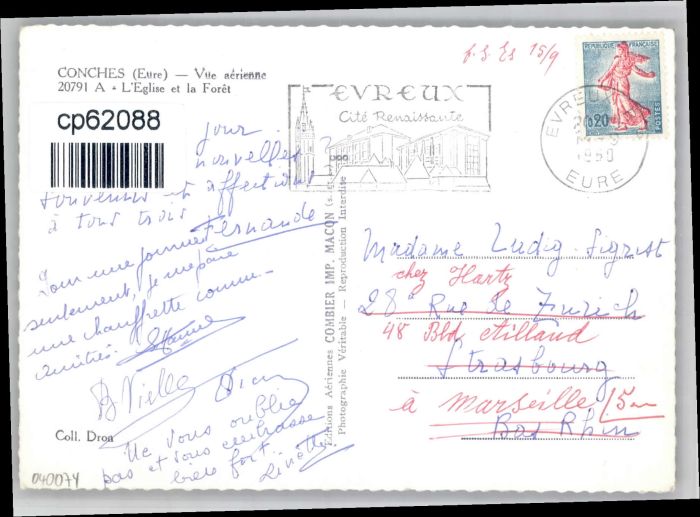 CONCHES (Eure) — Vue aérienne
20791 A • L'Eglise et la Forêt
cp62088
jour
nouvelles ?
souvenirs et affection
à tous trois
Fernande
Pour une journée
seulement, je me paie
une chauffrette comme —
Amitiés.
B Vielle
Ne vous oublie
pas et vous embrasse
bien fort.
Linette
Coll. Dron
040074
Editions Aériennes COMBIER IMP. MACON
Photographie Véritable — Reproduction Interdite
15/9
EVREUX
Cité Renaissante
EVREUX
1960
EURE
REPUBLIQUE FRANÇAISE
0,20
POSTES
Madame Ludig-Sigrist
chez Hartz
28 Rue de Zurich
48 Bld Aillaud
Strasbourg
à Marseille
Bas Rhin